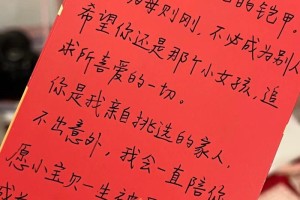 为母则刚,不必成为别人
希望你还是那个小女孩,追
求所喜爱的一切。
你是我亲自挑选的家人,
不出意外,我会一直陪你
愿小宝贝一生被